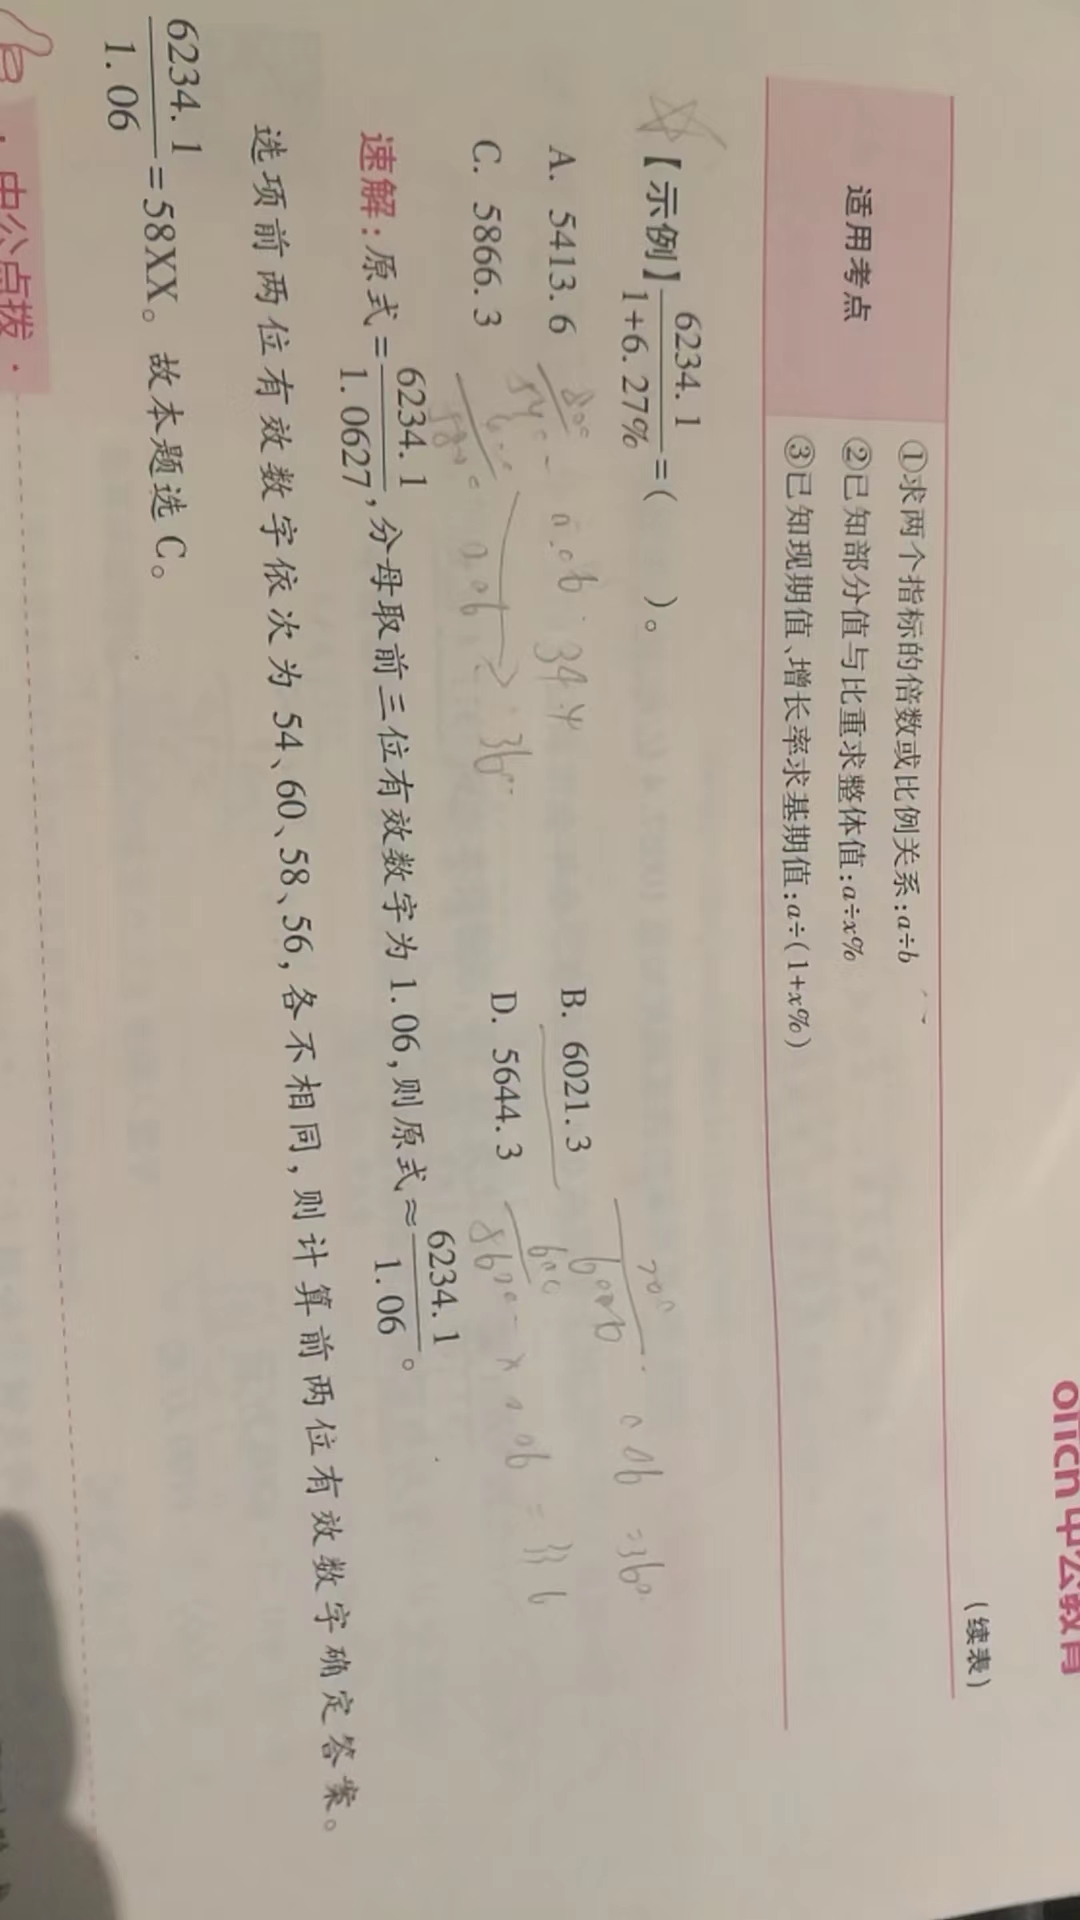 中公教育
(续表)
适用考点
①求两个指标的倍数或比例关系:a÷b
②已知部分值与比重求整体值:a÷x%
③已知现期值、增长率求基期值:a÷(1+x%)
【示例】6234.1/1+6.27%=( )。
A. 5413.6 B. 6021.3
C. 5866.3 D. 5644.3
速解:原式=6234.1/1.0627,分母取前三位有效数字为1.06,则原式≈6234.1/1.06。
选项前两位有效数字依次为54、60、58、56,各不相同,则计算前两位有效数字确定答案。
6234.1/1.06=58XX。故本题选C。
·中公点拨·